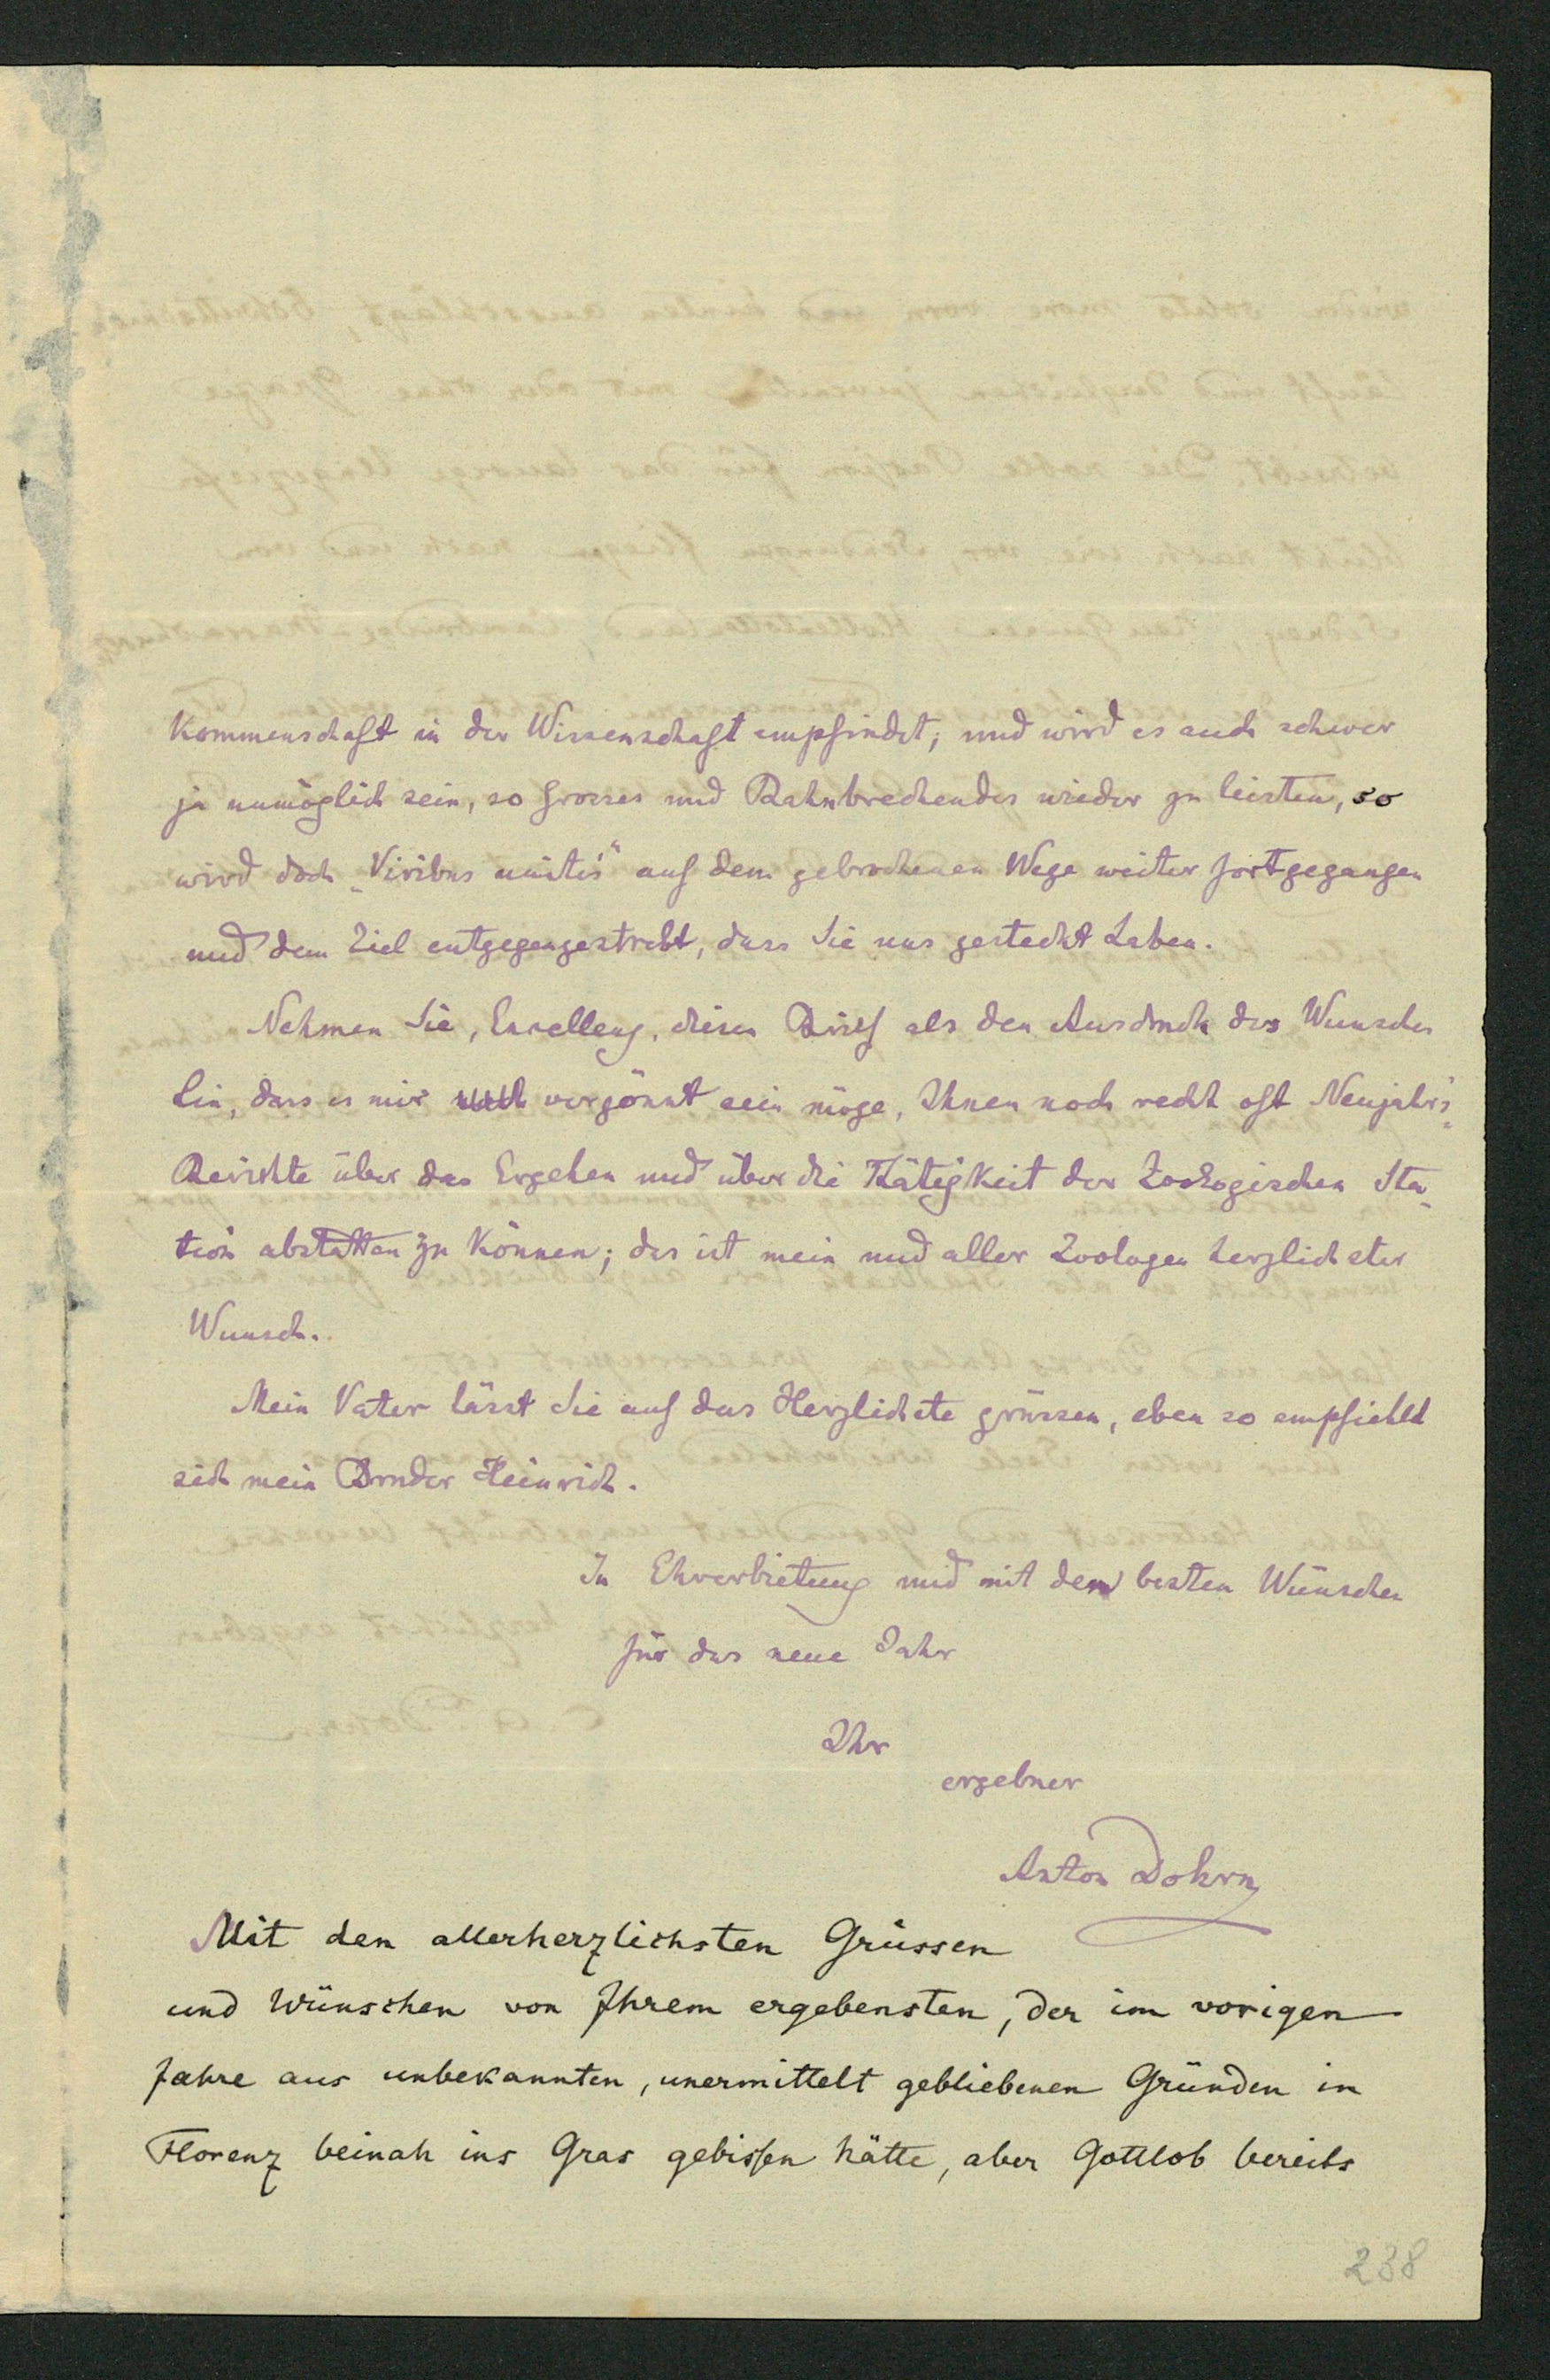 kommenschaft in der Wissenschaft empfindet; und wird es auch schwer
ja unmöglich sein, so Grosses und Bahnbrechendes wieder zu leisten, so
wird doch „Viribus unitis“ auf dem gebrochenen Wege weiter fortgegangen
und dem Ziel entgegengestrebt, dass Sie uns gesteckt haben.
Nehmen Sie, Excellenz, diesen Brief als den Ausdruck des Wunsches
hin, dass es mir vergönnt sein möge, Ihnen noch recht oft Neujahrs-
Berichte über das Ergehen und über die Thätigkeit der Zoologischen Sta-
tion abstatten zu können; das ist mein und aller Zoologen herzlichster
Wunsch.
Mein Vater lässt Sie auf das Herzlichste grüssen, eben so empfiehlt
sich mein Bruder Heinrich.
In Ehrerbietung und mit den besten Wünschen
für das neue Jahr
Ihr
ergebner
Anton Dohrn
Mit den allerherzlichsten Grüssen
und Wünschen von Ihrem ergebensten, der im vorigen
Jahre aus unbekannten, unermittelt gebliebenen Gründen in
Florenz beinah ins Gras gebissen hätte, aber Gottlob bereits
238